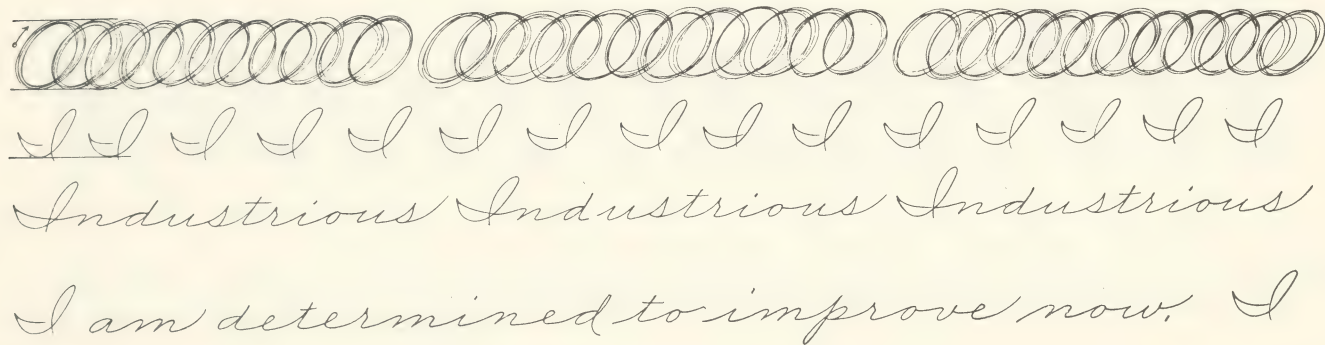 I I I I I I I I I I I I I I I
Industrious Industrious Industrious
I am determined to improve now. I